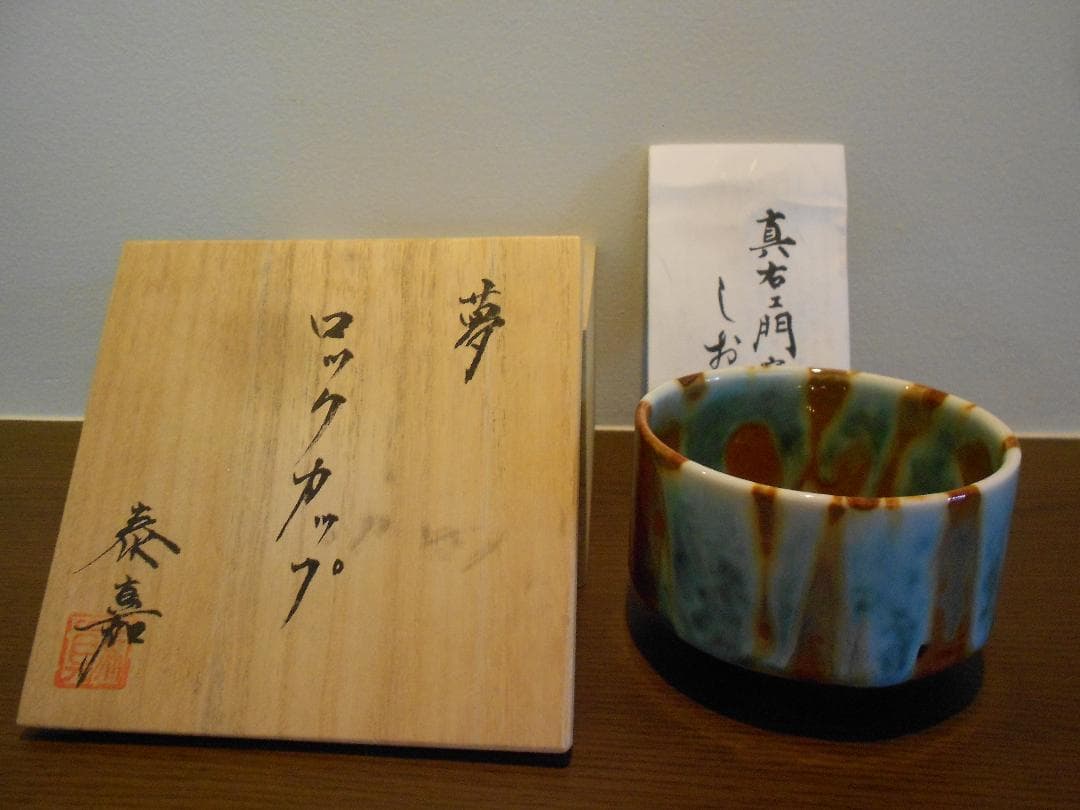 夢
ロックカップ
泰嘉
真右エ門
しお